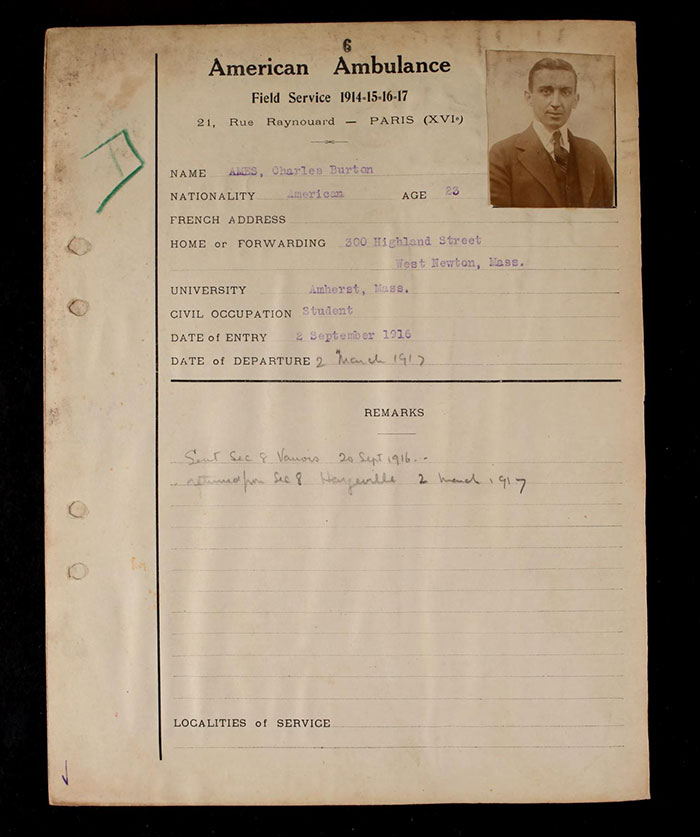 6
American Ambulance
Field Service 1914-15-16-17
21, Rue Raynouard — PARIS (XVIe)
NAME AMES, Charles Burton
NATIONALITY American AGE 23
FRENCH ADDRESS
HOME or FORWARDING 300 Highland Street
West Newton, Mass.
UNIVERSITY Amherst, Mass.
CIVIL OCCUPATION Student
DATE of ENTRY 2 September 1916
DATE of DEPARTURE 2 March 1917
REMARKS
Sent Sec 8 20 Sept 1916.
returned from Sec 8 2 March 1917
LOCALITIES of SERVICE